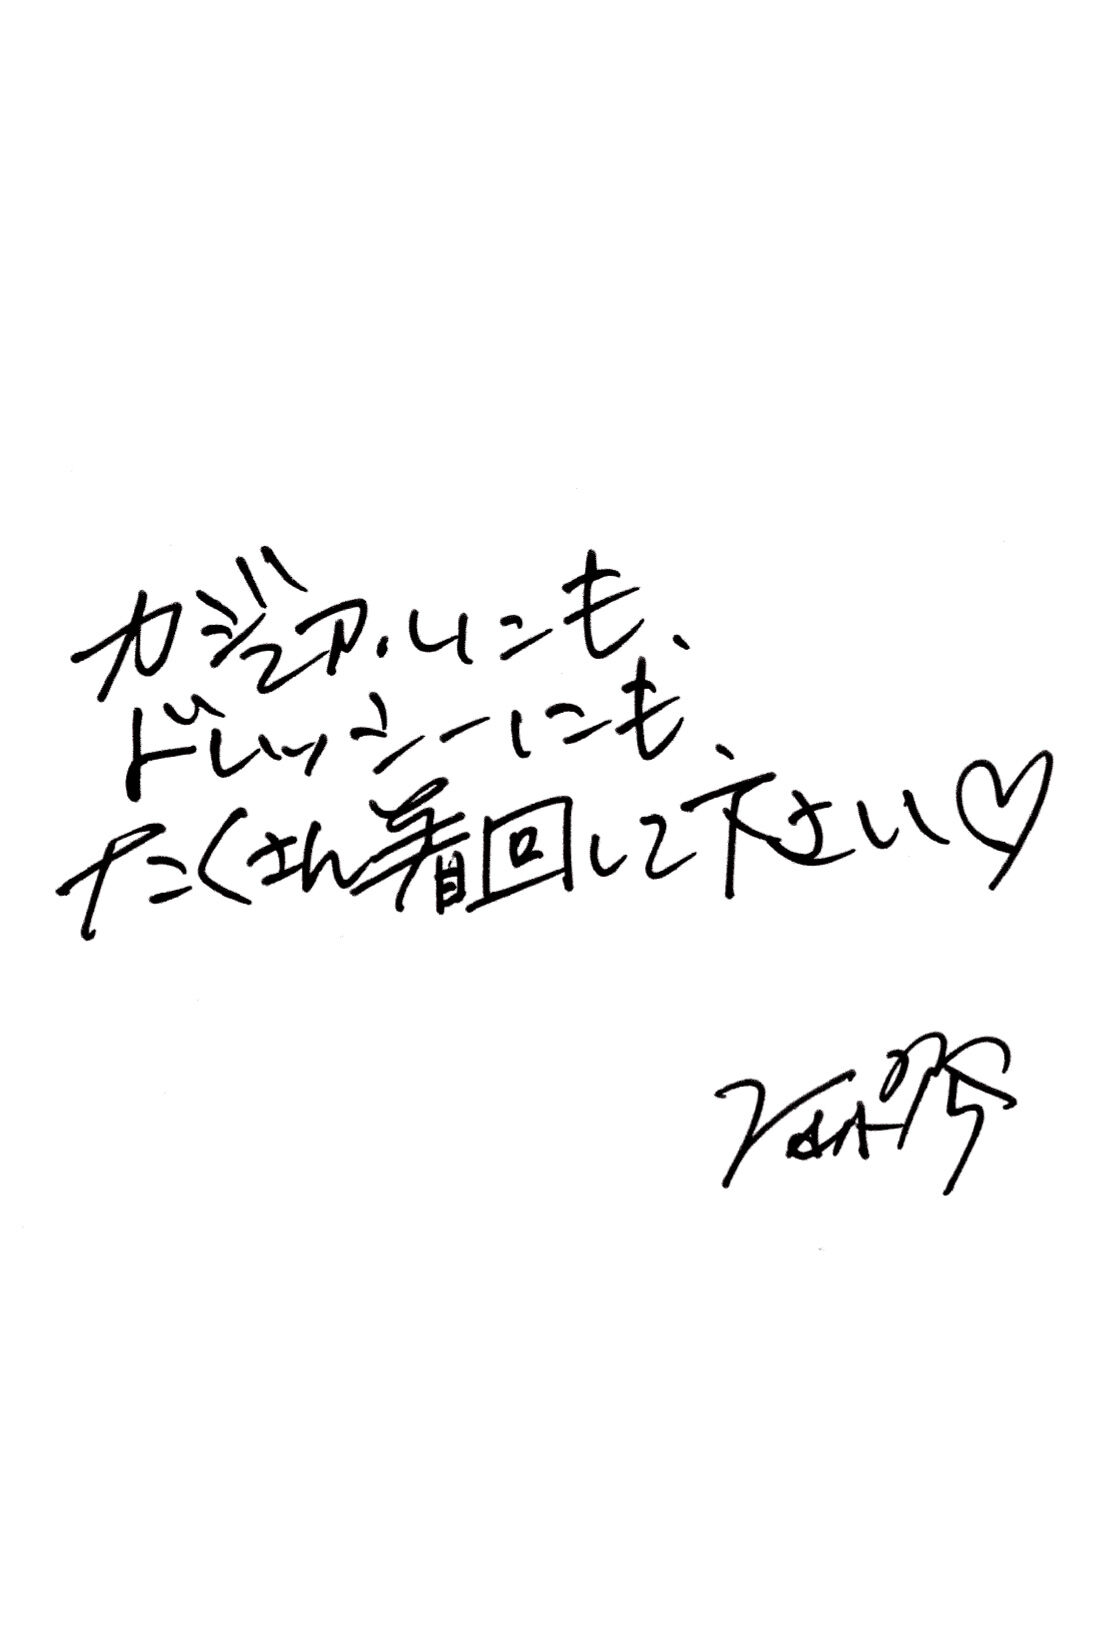 カジュアルにも、
ドレッシーにも、
たくさん着回して下さい♡